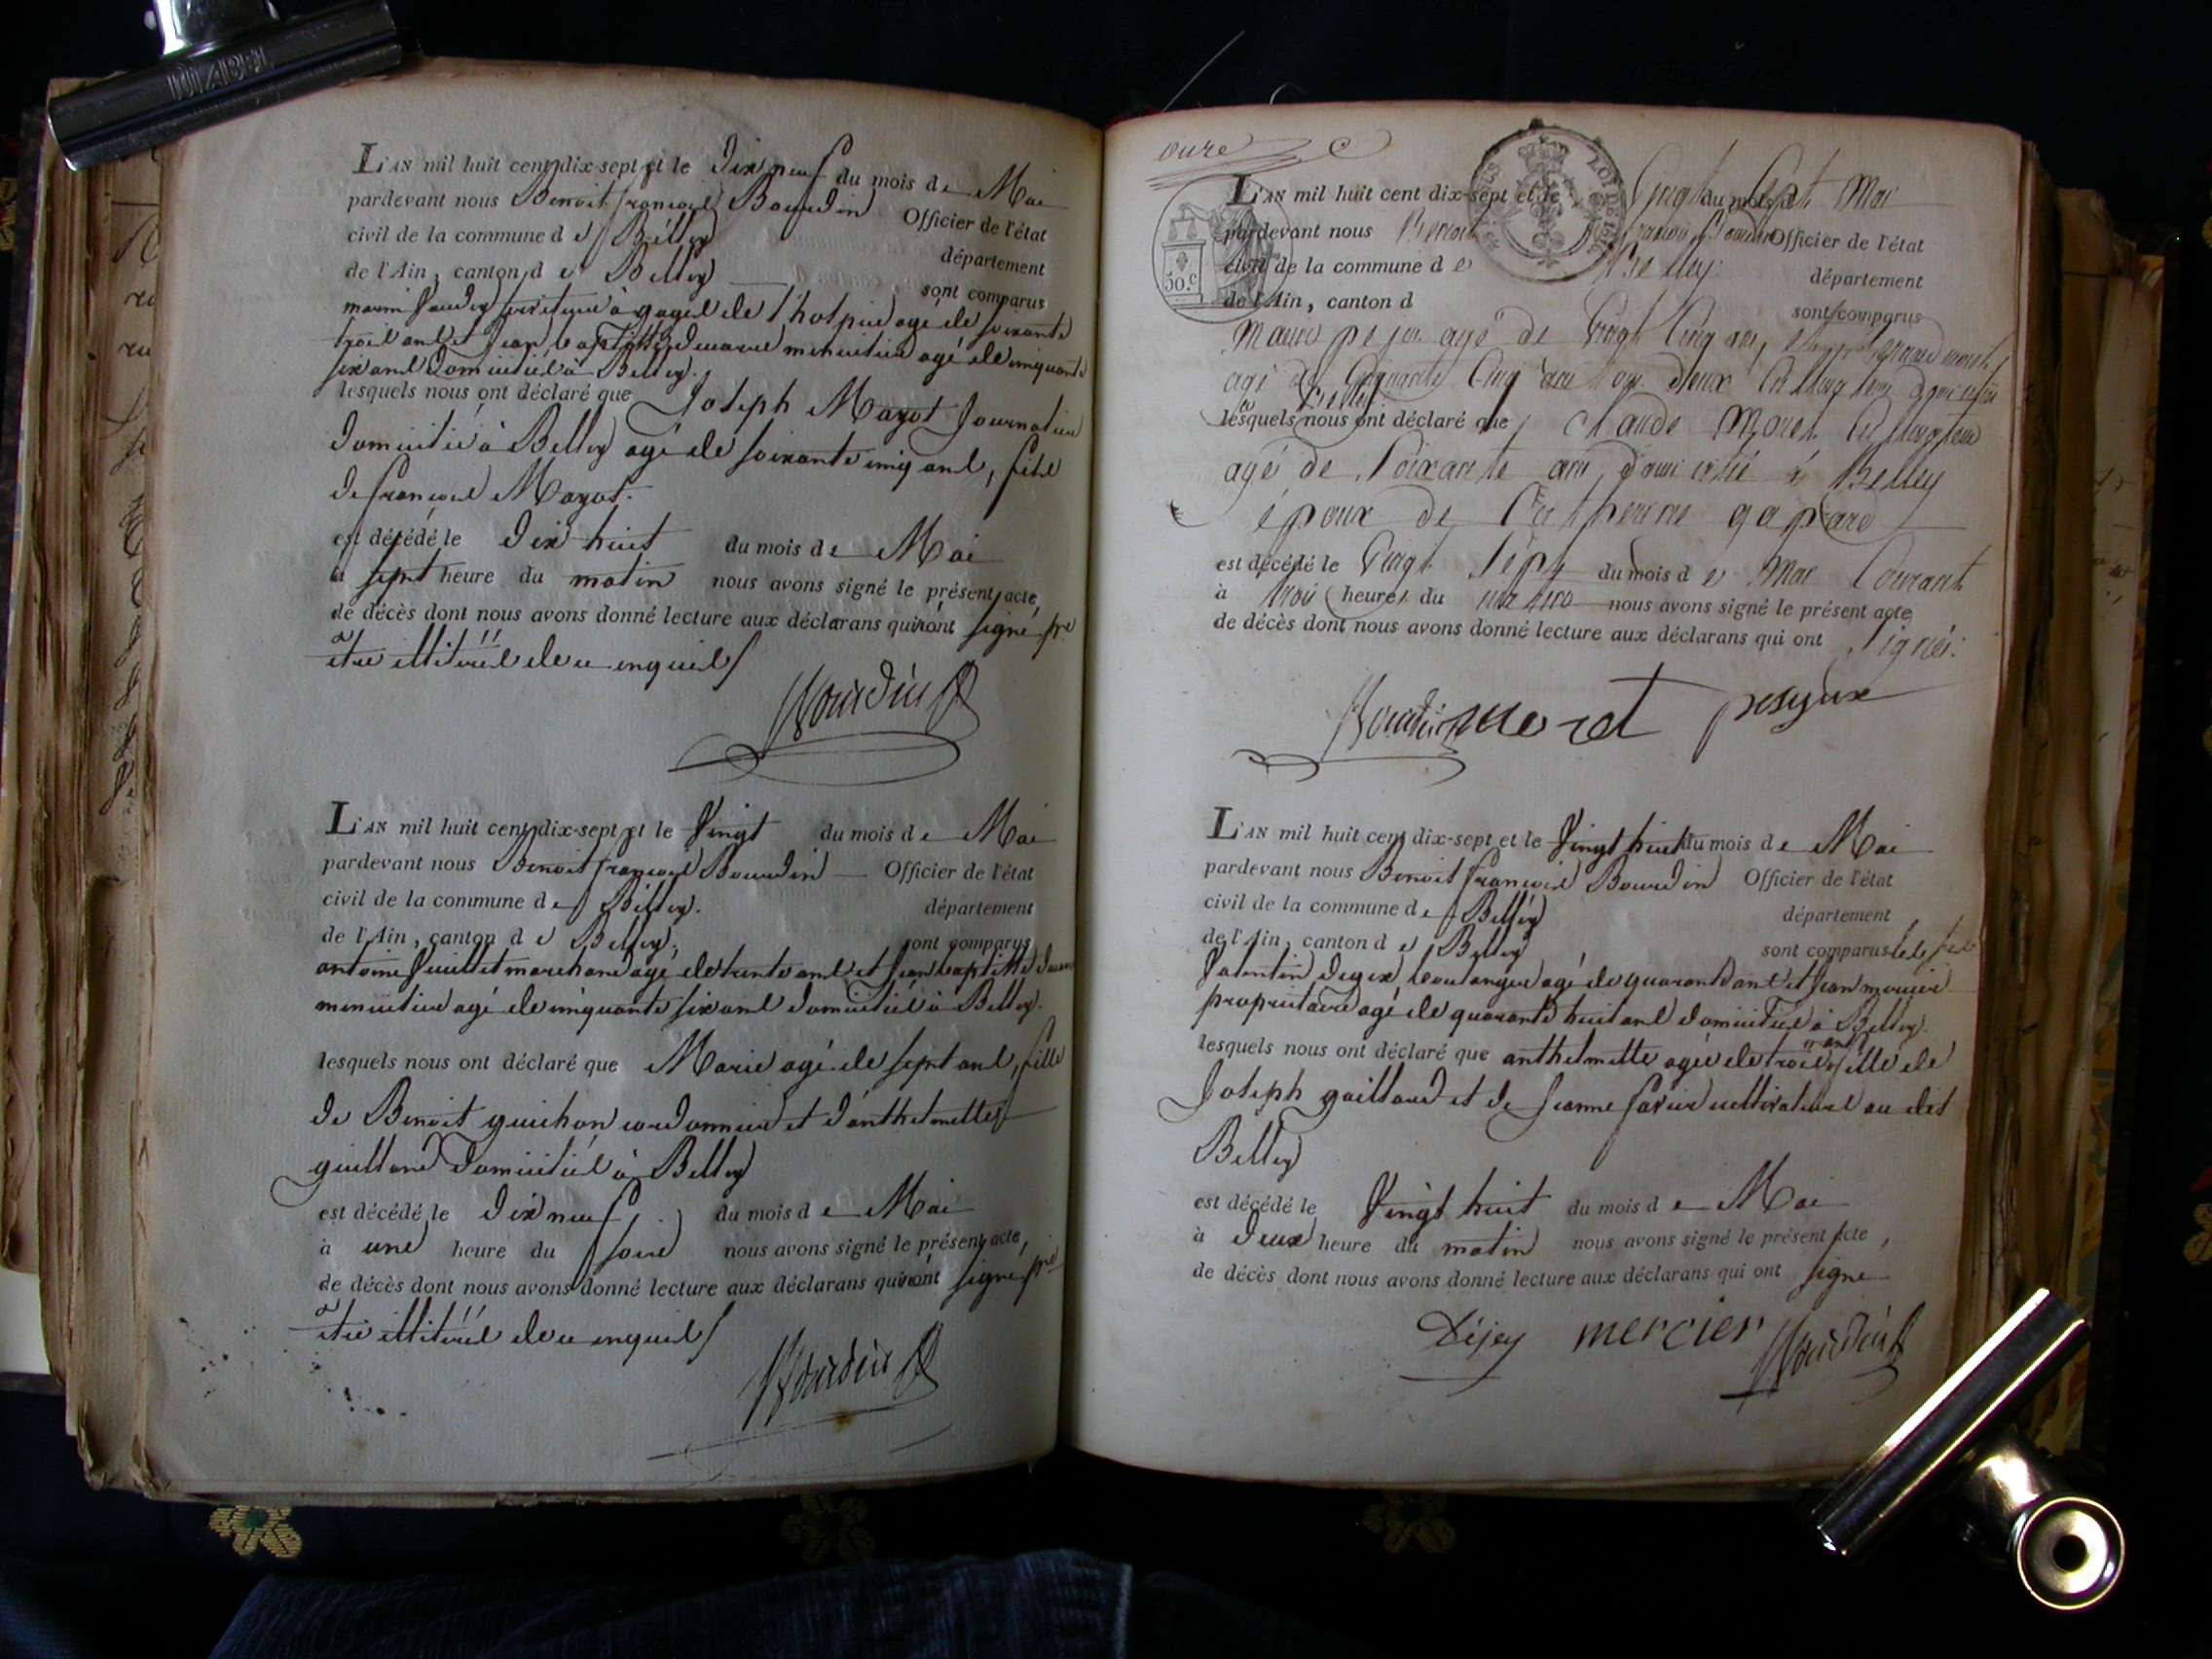 L'AN mil huit cent dix-sept et le Dix neuf du mois de Mai
pardevant nous Benoit françois Bourdin Officier de l'état
civil de la commune de Belley département
de l'Ain, canton de Belley sont comparus
à gages de l'hospice agé de soixante
trois ans et Jean baptiste menuisier agé de cinquante
six ans Domiciliés à Belley.
lesquels nous ont déclaré que Joseph Mayot Journalier
Domicilié à Belley agé de soixante cinq ans, fils
de françois Mayot.
est décédé le Dix huit du mois de Mai
à sept heure du matin nous avons signé le présent acte
de décès dont nous avons donné lecture aux déclarans qui n'ont signé pr
être illitérés de ce enquis
Bourdin
L'AN mil huit cent dix-sept et le Vingt du mois de Mai
pardevant nous Benoit françois Bourdin Officier de l'état
civil de la commune de Belley. département
de l'Ain, canton de Belley. sont comparus
antoine marchand agé de trente ans et Jean baptiste
menuisier agé de cinquante six ans domiciliés à Belley.
lesquels nous ont déclaré que Marie agé de sept ans, fille
de Benoit guichon cordonnier et d'anthelmette
guilland Domiciliés à Belley
est décédé le Dix neuf du mois de Mai
à une heure du soir nous avons signé le présent acte,
de décès dont nous avons donné lecture aux déclarans qui n'ont signé pr
être illitérés de ce enquis
Bourdin
50.c
LOI DE 1816
L'AN mil huit cent dix-sept et le Vingt Sept du mois d Mai
pardevant nous Benoit françois Bourdin Officier de l'état
civil de la commune de Belley. département
de l'Ain, canton d sont comparus
agé de Vingt Cinq ans,
agé de Cinquante Cinq ans tous deux Cultivateurs domiciliés
à Belley
lesquels nous ont déclaré que claude Moret Cultivateur
agé de Soixante ans, domicilié à Belley
époux de Catherine
est décédé le Vingt Sept du mois de Mai Courant
à trois heures du matin nous avons signé le présent acte
de décès dont nous avons donné lecture aux déclarans qui ont Signés:
Bourdin moret
L'AN mil huit cent dix-sept et le Vingt huit du mois de Mai
pardevant nous Benoit françois Bourdin Officier de l'état
civil de la commune de Belley département
de l'Ain, canton de Belley sont comparus
Valentin Dejex boulanger agé de quarante ans et Jean mercier
propriétaire agé de quarante huit ans domiciliés à Belley.
lesquels nous ont déclaré que anthelmette agée de trois ans fille de
Joseph gaillard et de Jeanne cultivateurs au dit
Belley
est décédé le Vingt huit du mois de Mai
à Deux heure du matin nous avons signé le présent acte,
de décès dont nous avons donné lecture aux déclarans qui ont signé
Déjey mercier Bourdin